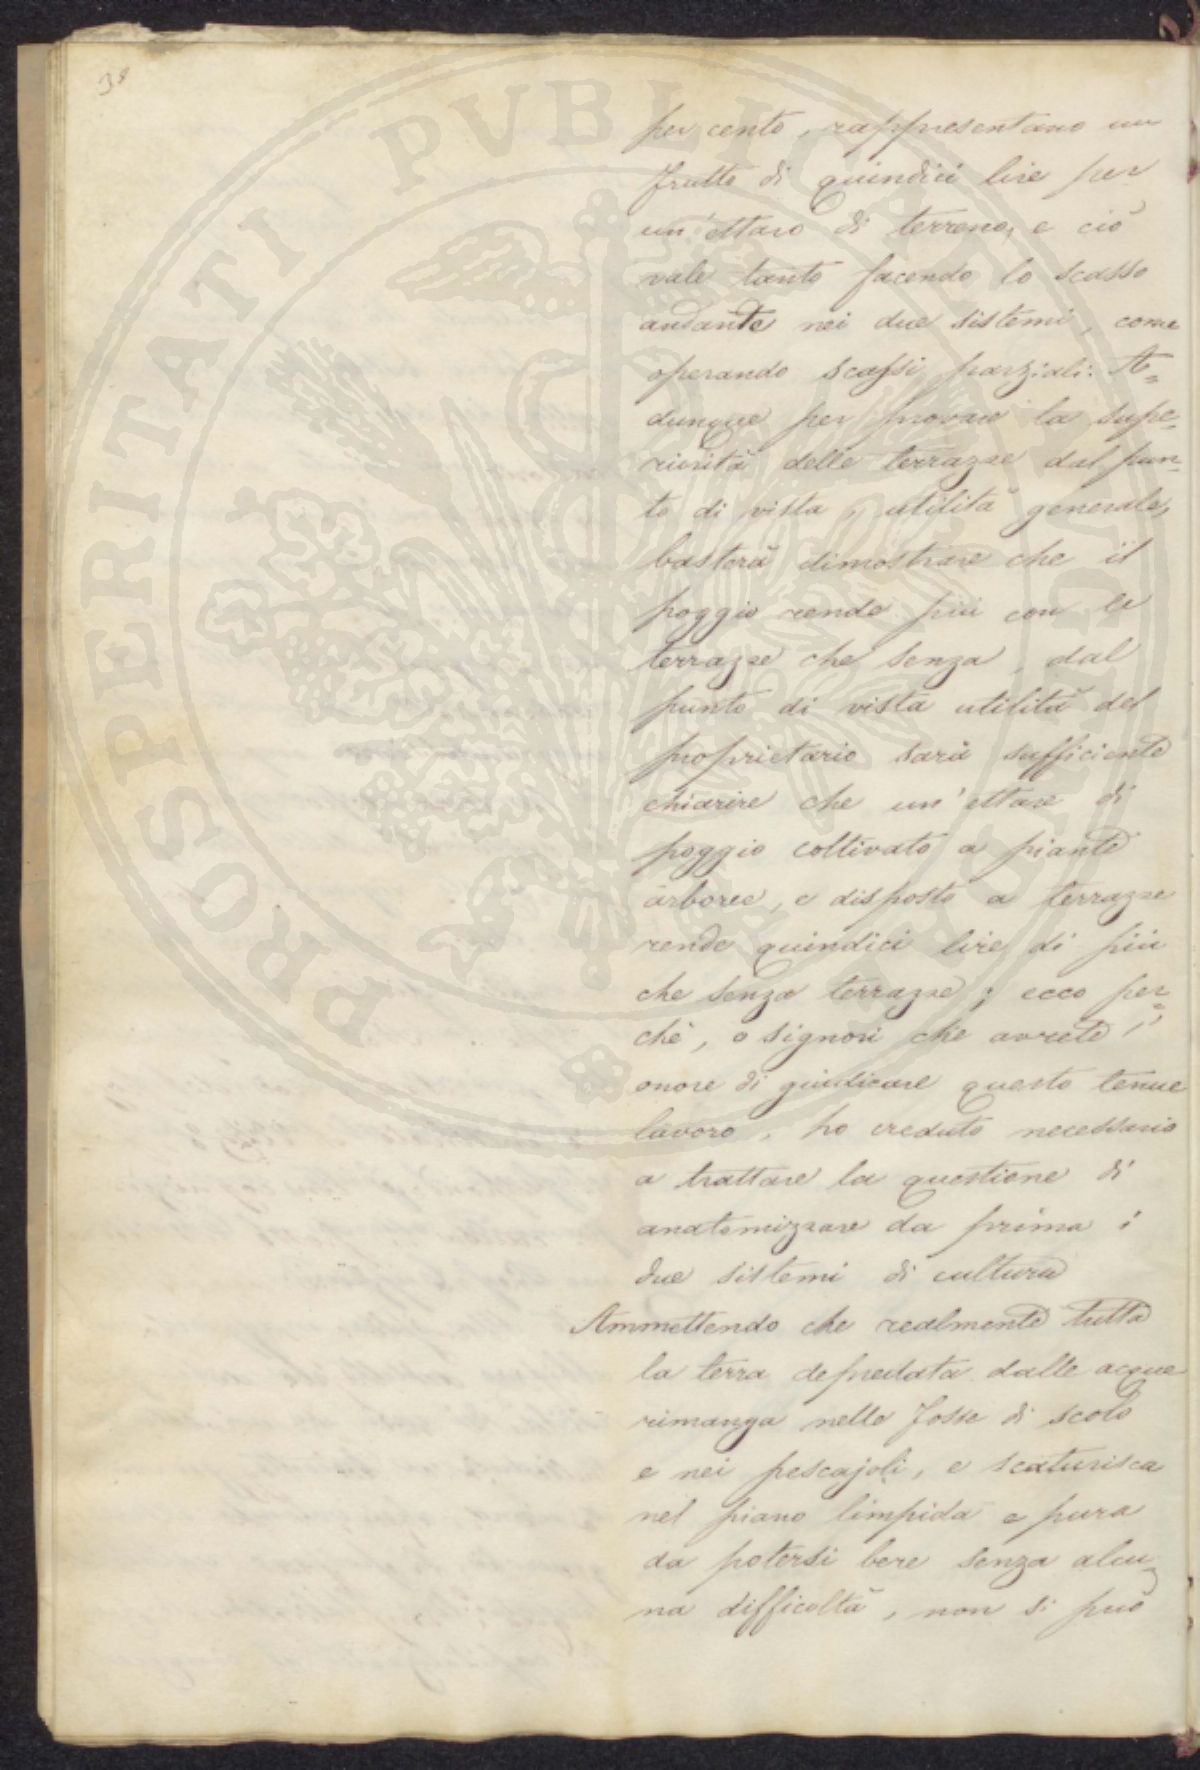 38
per cento, rappresentano un
frutto di quindici lire per
un'ettaro di terreno, e ciò
vale tanto facendo lo scasso
andante nei due sistemi, come
operando scassi parziali. A=
dunque per provare la supe=
riorità delle terrazze dal pun=
to di vista, utilità generale,
basterà dimostrare che il
poggio rende più con le
terrazze che senza, dal
punto di vista utilità del
proprietario sarà sufficiente
chiarire che un'ettare di
poggio coltivato a piante
arboree, e disposto a terrazze
rende quindici lire di più
che senza terrazze; ecco per=
chè, o signori che avrete l'
onore di giudicare questo tenue
lavoro, ho creduto necessario
a trattare la questione di
anatomizzare da prima i
due sistemi di cultura
Ammettendo che realmente tutta
la terra depredata dalle acque
rimanga nelle fosse di scolo
e nei pescajoli, e scaturisca
nel piano limpida e pura
da potersi bere senza alcu=
na difficoltà, non si può
PROSPERITATI PUBLICAE AUGENDAE